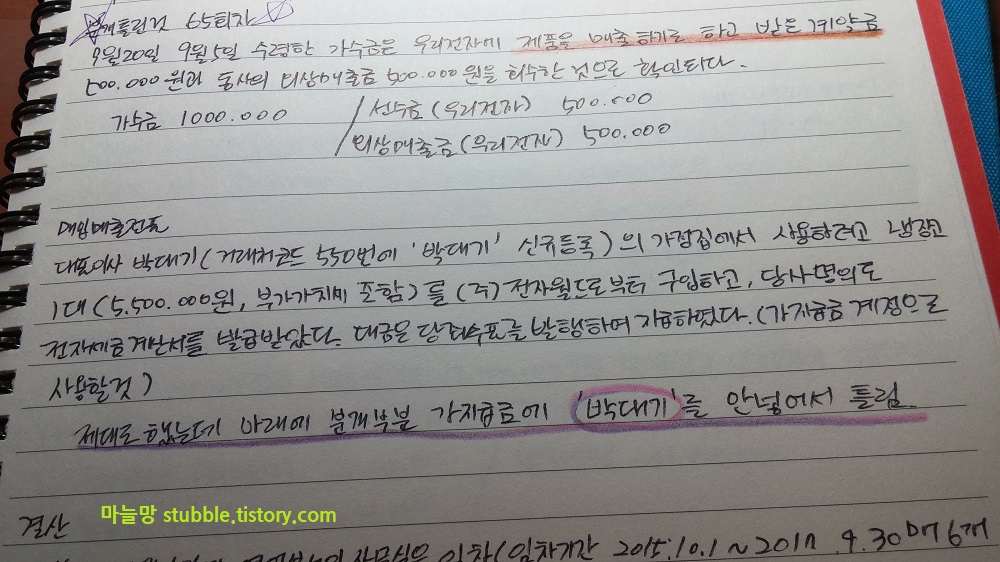 분개틀린것 65회차
9월20일 9월5일 수령한 가수금은 우리전자에 제품을 매출하기로 하고 받은 계약금
500.000원과 동사의 외상매출금 500.000원을 회수한 것으로 확인되다.
가수금 1000.000 / 선수금(우리전자) 500.000
/ 외상매출금(우리전자) 500.000
매입매출전표
대표이사 박대기(거래처코드 550번에 '박대기' 신규등록)의 가정집에서 사용하려고 냉장고
1대(5.500.000원, 부가가치세 포함)를 (주)전자월드로부터 구입하고, 당사명의로
전자세금계산서를 발급받았다. 대금은 당좌수표를 발행하여 지급하였다.(가지급금 계정으로
사용할것)
제대로 했는데 아래에 분개부분 가지급금에 '박대기'를 안넣어서 틀림
결산
마늘망 stubble.tistory.com
사무실은 임차(임차기간 2015.10.1 ~ 2017 9.30 매6개